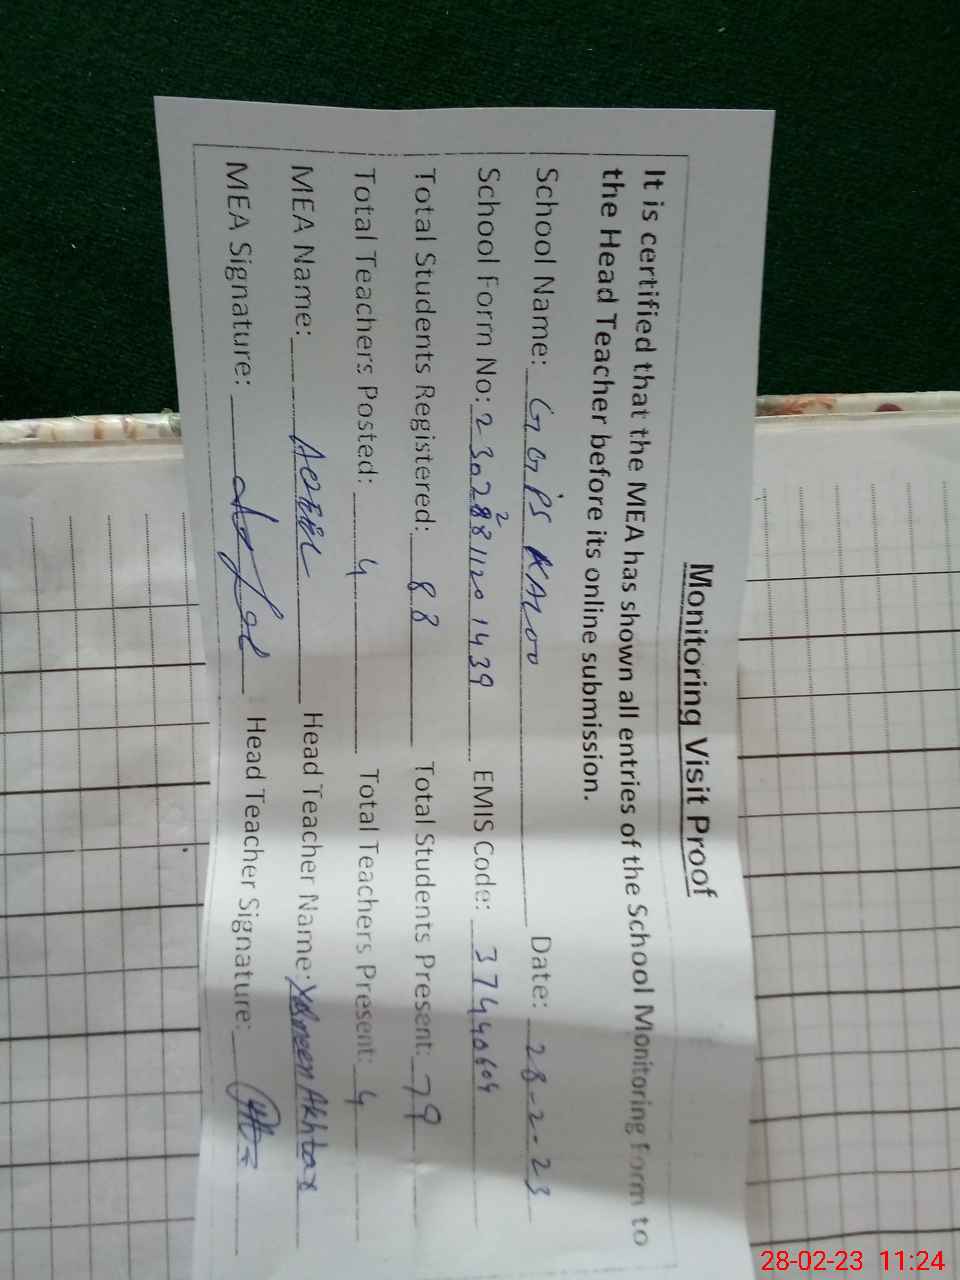 Monitoring Visit Proof
It is certified that the MEA has shown all entries of the School Monitoring Form to
the Head Teacher before its online submission.
School Name: GGPS KALOO Date: 28-2-23
School Form No: 23028811201439 EMIS Code: 37440604
Total Students Registered: 88 Total Students Present: 79
Total Teachers Posted: 4 Total Teachers Present: 4
MEA Name: Head Teacher Name: Yasmeen Akhtar
MEA Signature: Head Teacher Signature:
28-02-23 11:24